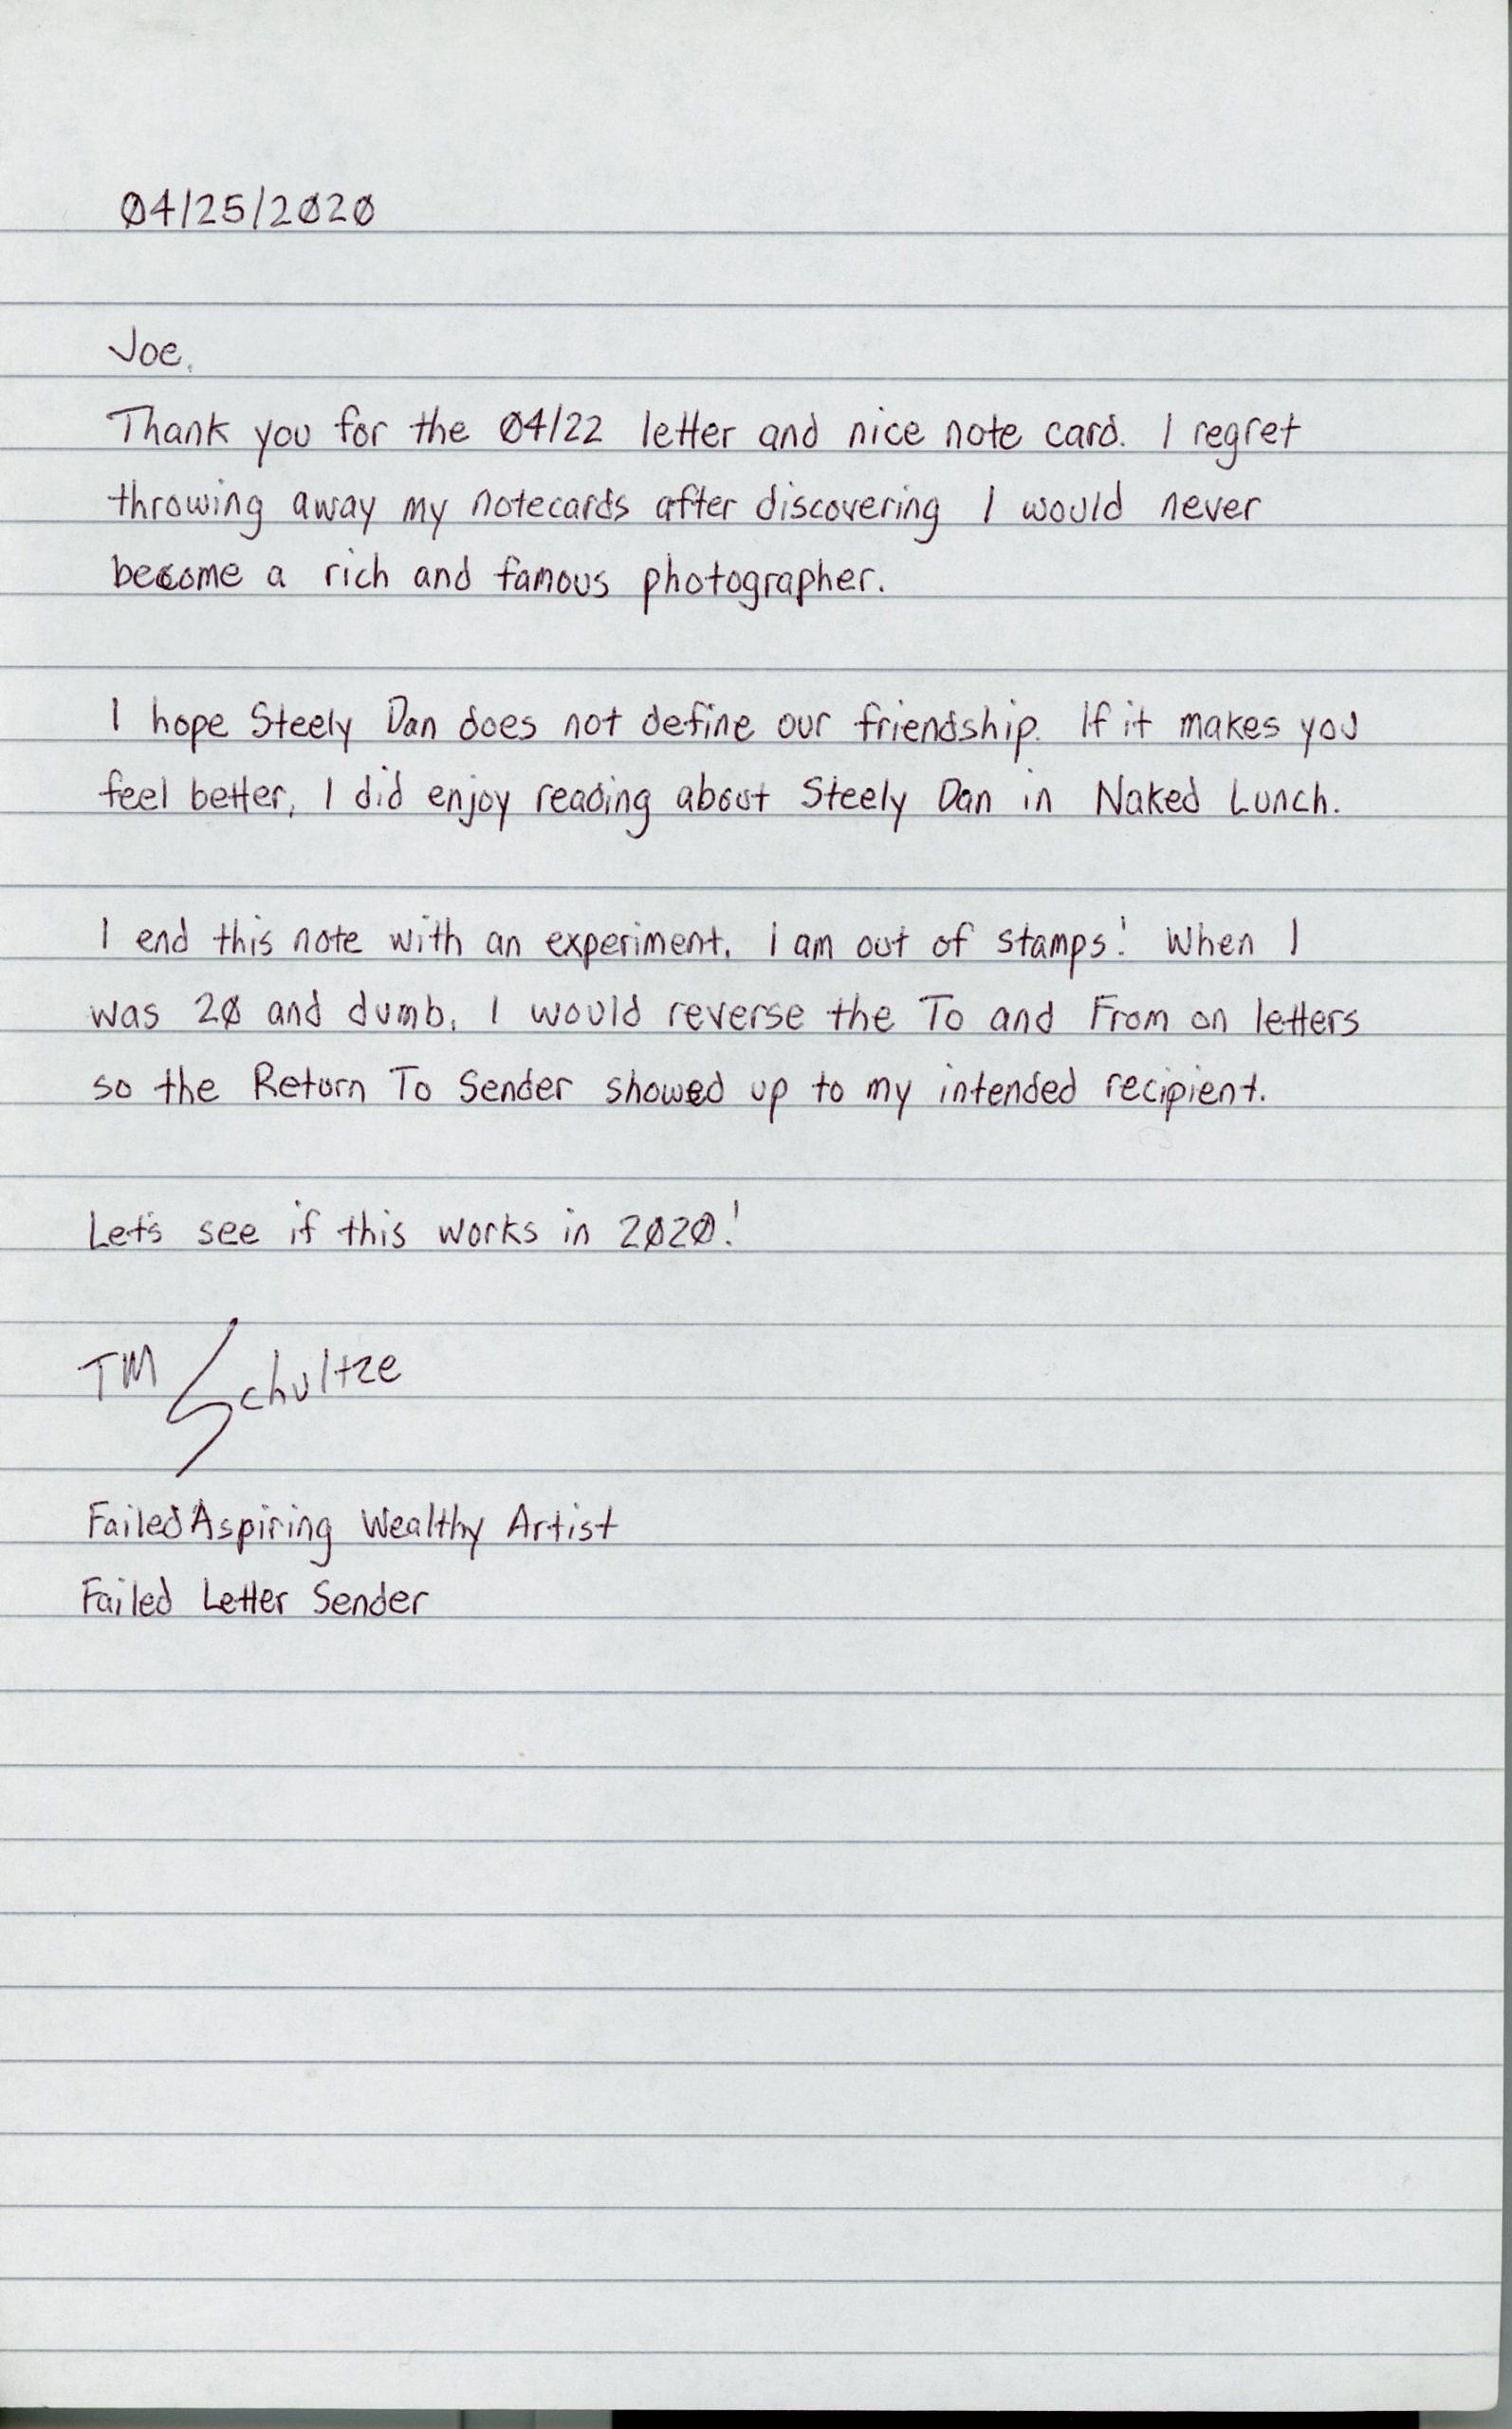 04/25/2020
Joe,
Thank you for the 04/22 letter and nice note card. I regret
throwing away my notecards after discovering I would never
become a rich and famous photographer.
I hope Steely Dan does not define our friendship. If it makes you
feel better, I did enjoy reading about Steely Dan in Naked Lunch.
I end this note with an experiment. I am out of stamps! When I
was 20 and dumb, I would reverse the To and From on letters
so the Return To Sender showed up to my intended recipient.
Let's see if this works in 2020!
TM Schultze
Failed Aspiring Wealthy Artist
Failed Letter Sender